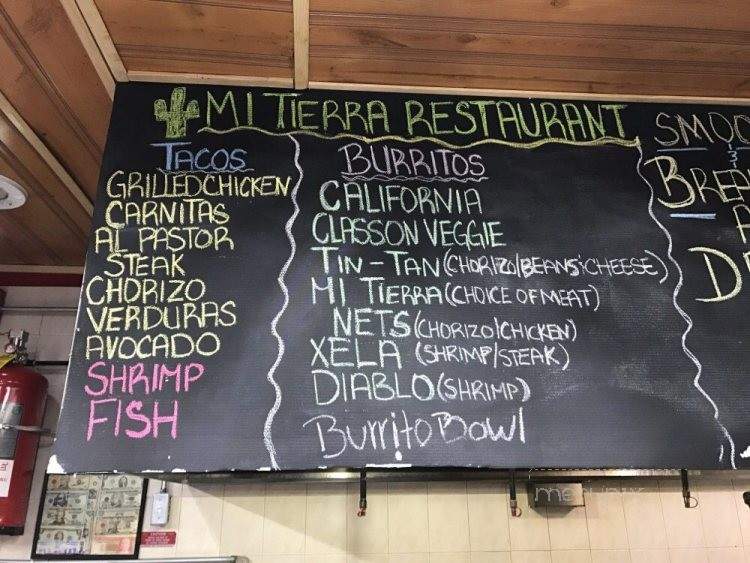 MI TIERRA RESTAURANT
TACOS
GRILLED CHICKEN
CARNITAS
AL PASTOR
STEAK
CHORIZO
VERDURAS
AVOCADO
SHRIMP
FISH
BURRITOS
CALIFORNIA
CLASSON VEGGIE
TIN-TAN (CHORIZO/BEANS:CHEESE)
MI TIERRA (CHOICE OF MEAT)
NETS (CHORIZO/CHICKEN)
XELA (SHRIMP/STEAK)
DIABLO (SHRIMP)
Burrito Bowl